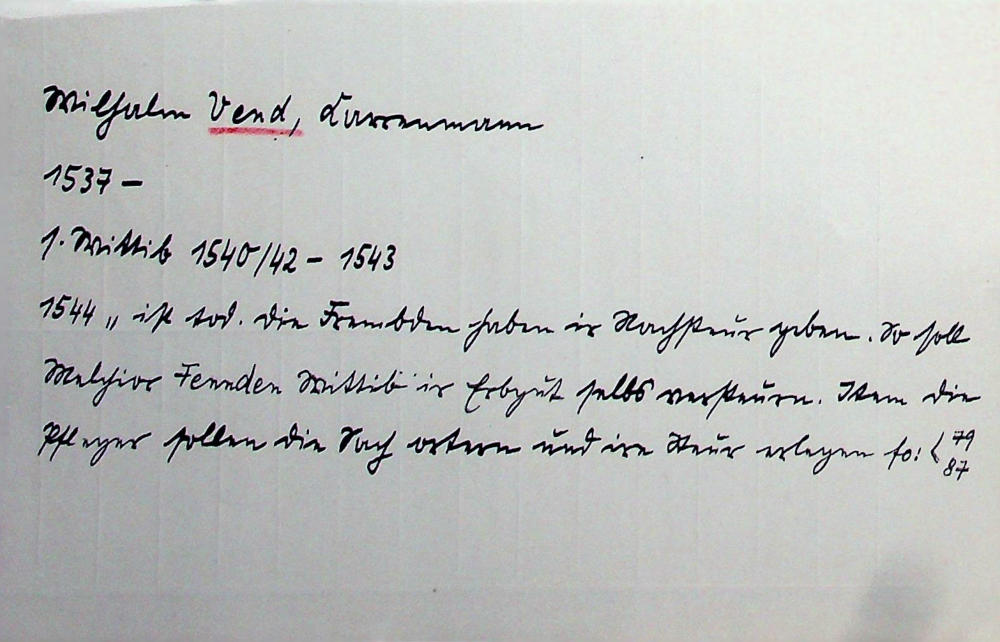 Wilhalm Vend, Karrenmann
1537 –
1. Wittib 1540/42 – 1543
1544 „ ist tod. die Frembden haben ir Nachsteur geben. So soll
Melchior Fennden Wittib ir Erbgut selbs versteurn. Item die
Pfleger sollen die Sach ortern und ire Steur erlegen fo: 79
87